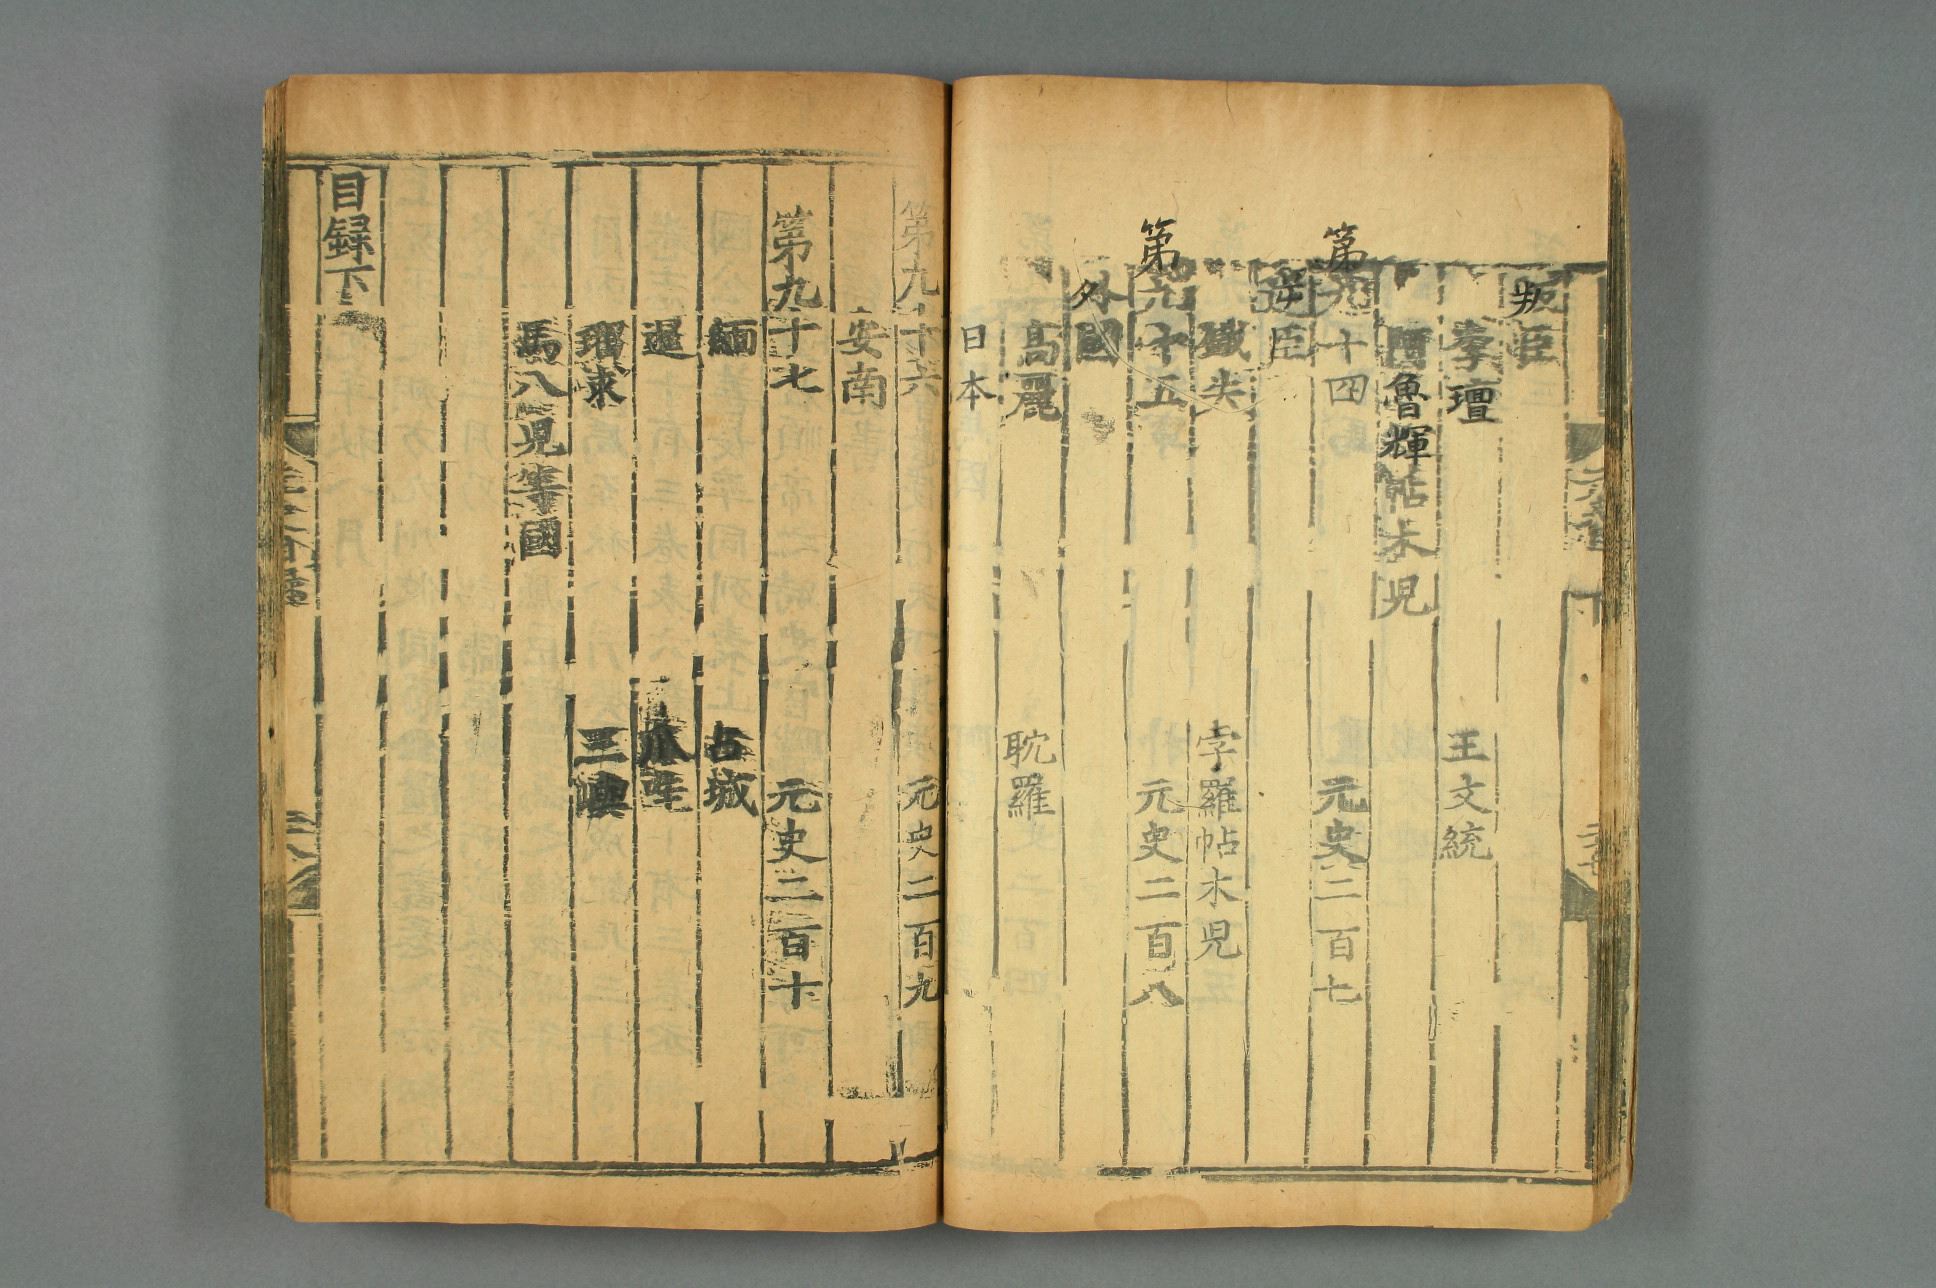 叛臣
李璮 王文統
阿魯輝帖木児
第九十四 元史二百七
逆臣
鐵失 孛羅帖木児
第九十五 元史二百八
外國
高麗 耽羅
日本
第九十六 元史二百九
安南
第九十七 元史二百十
緬 占城
暹 爪哇
瑠求 三嶼
馬八児等國
目録下